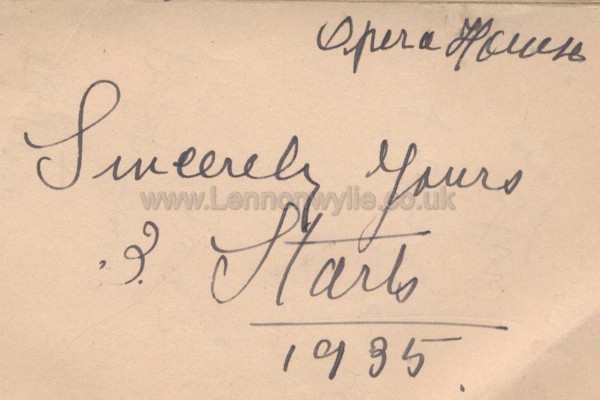 Opera House
Sincerely Yours
www.Lennonwylie.co.uk
3 Starts
1935.